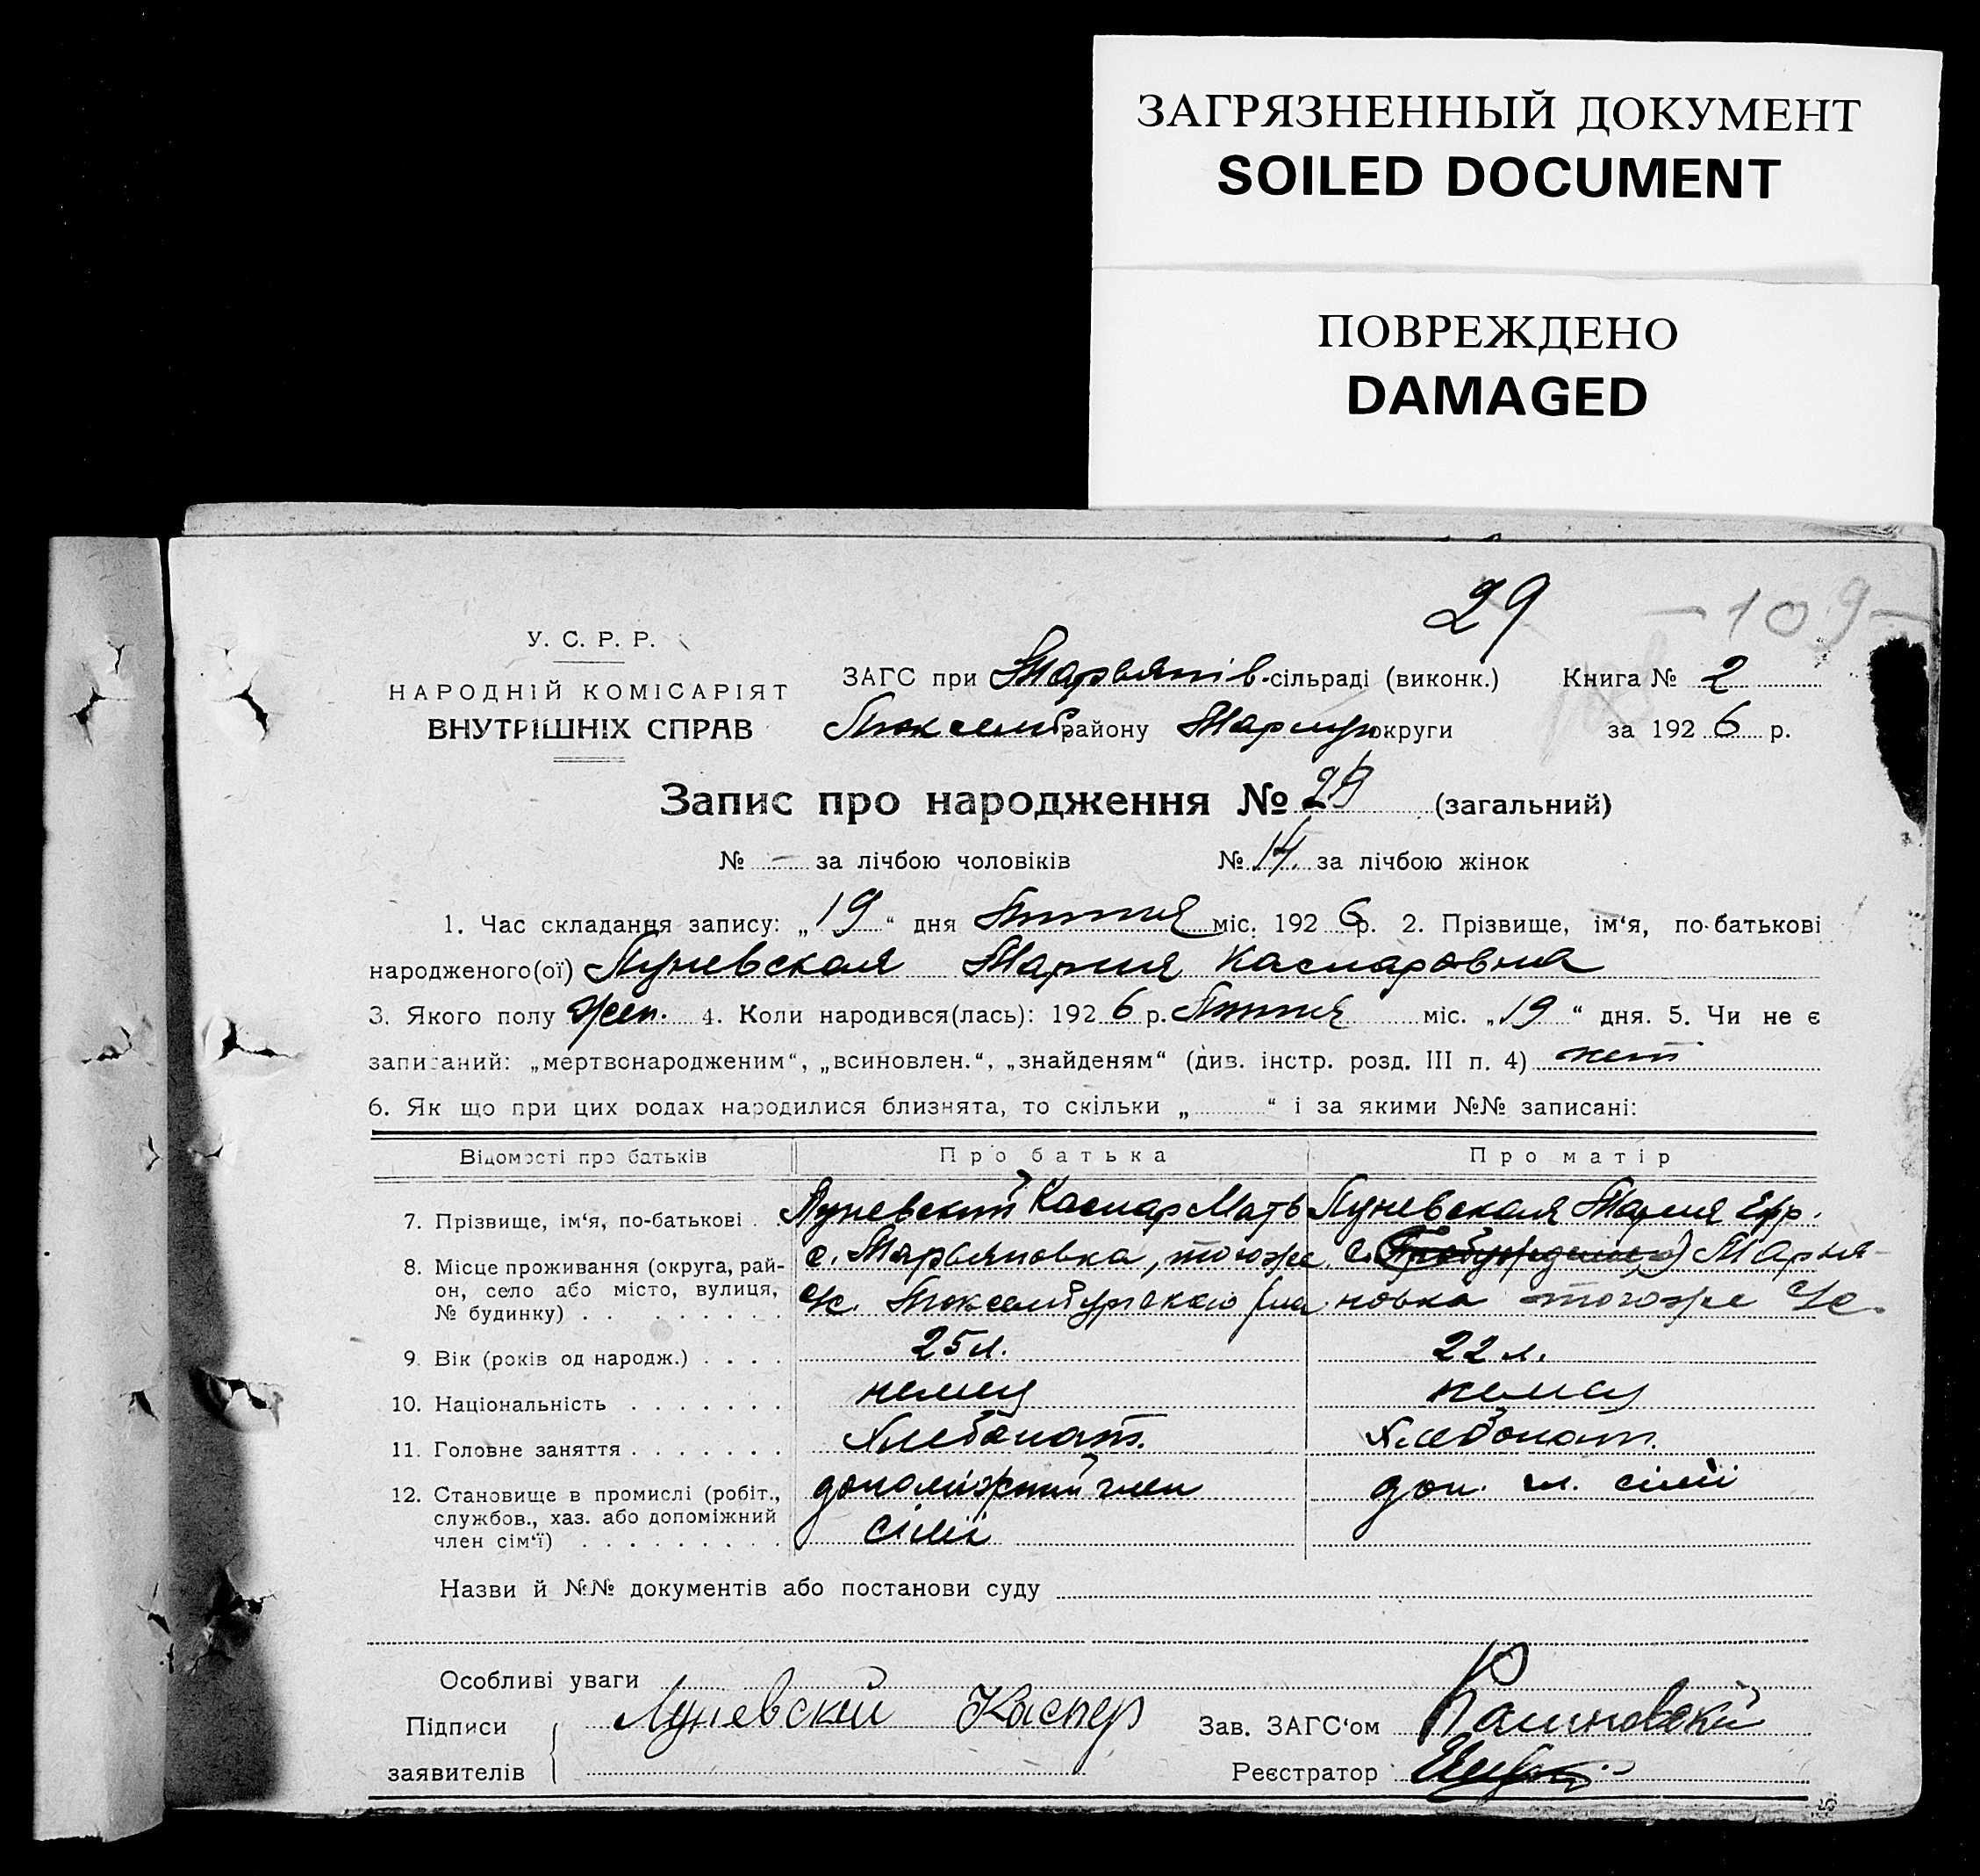 ЗАГРЯЗНЕННЫЙ ДОКУМЕНТ
SOILED DOCUMENT
ПОВРЕЖДЕНО
DAMAGED
29 – 109 –
У. С. Р. Р.
НАРОДНІЙ КОМІСАРІЯТ
ВНУТРІШНІХ СПРАВ
ЗАГС при Марьянів-сільраді (виконк.) Книга № 2
Люксемб. району Маріуп округи за 1926 р.
Запис про народження № 29 (загальний)
№ – за лічбою чоловіків № 14 за лічбою жінок
1. Час складання запису: „19“ дня міс. 1926 р. 2. Прізвище, ім‘я, по-батькові
народженого(ої) Луневская Мария Каспаровна
3. Якого полу жен. 4. Коли народився(лась): 1926 р. міс. „19“ дня. 5. Чи не є
записаний: „мертвонародженим“, „всиновлен.“, „знайденям“ (див. інстр. розд. III п. 4) нет
6. Як що при цих родах народилися близнята, то скільки „ “ і за якими №№ записані:
Відомості про батьків Про батька Про матір
7. Прізвище, ім‘я, по-батькові . . Луневский Каспар Мать Луневская Мария Ефр.
8. Місце проживання (округа, рай- с. Марьяновка, тогоже с. Марья-
он, село або місто, вулиця, новка тогоже
№ будинку) . . . . . . . . .
9. Вік (років од народж.) . . . . 25 л. 22 л.
10. Національність . . . . . . . немец немец
11. Головне заняття . . . . . . . Хлебопаш. Хлебопаш.
12. Становище в промислі (робіт., допоміжний член доп. чл. сімїі
службов., хаз. або допоміжний сімїі
член сім‘ї) . . . . . . . . .
Назви й №№ документів або постанови суду
Особливі уваги
Підписи Луневский Каспер Зав. ЗАГС‘ом
заявителів Реєстратор